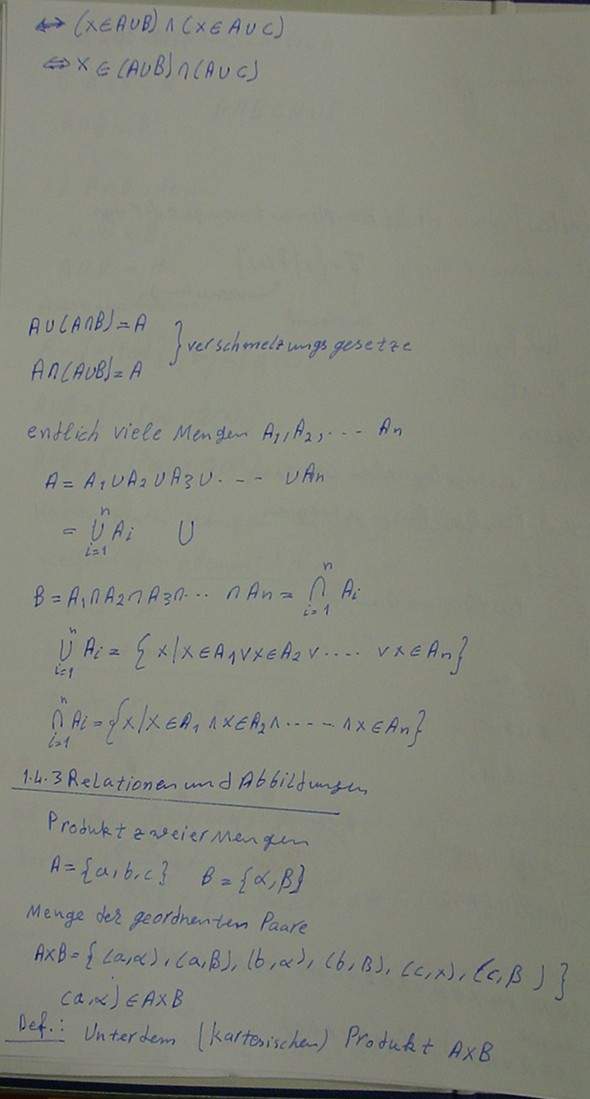 ⇔ (x∈A∪B) ∧ (x∈A∪C)
⇔ x ∈ (A∪B)∩(A∪C)
A∪(A∩B)=A
} verschmelzungsgesetze
A∩(A∪B)=A
endlich viele Mengen A₁, A₂, ... An
A = A₁∪A₂∪A₃∪... ∪An
= ⋃ᵢ₌₁ⁿ Ai ∪
B = A₁∩A₂∩A₃∩... ∩An = ⋂ᵢ₌₁ⁿ Ai
⋃ᵢ₌₁ⁿ Ai = {x/x∈A₁∨x∈A₂∨.... ∨x∈An}
⋂ᵢ₌₁ⁿ Ai = {x/x∈A₁∧x∈A₂∧..... ∧x∈An}
1.4.3 Relationen und Abbildungen
Produkt zweier Mengen
A={a,b,c} B={α,β}
Menge der geordnenten Paare
A×B={(a,α),(a,β),(b,α),(b,β),(c,α),(c,β)}
(a,α)∈A×B
Def.: Unter dem (kartesischen) Produkt A×B